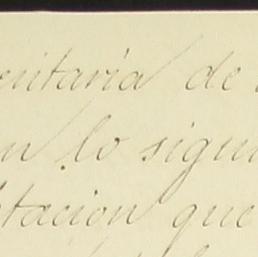 entaria de
n lo sigui
tacion que